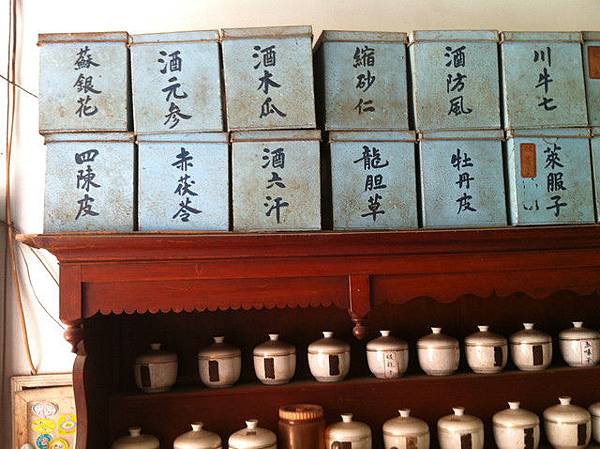 蘇銀花
酒元參
酒木瓜
縮砂仁
酒防風
川牛七
四陳皮
赤茯苓
酒六汗
龍胆草
牡丹皮
萊服子